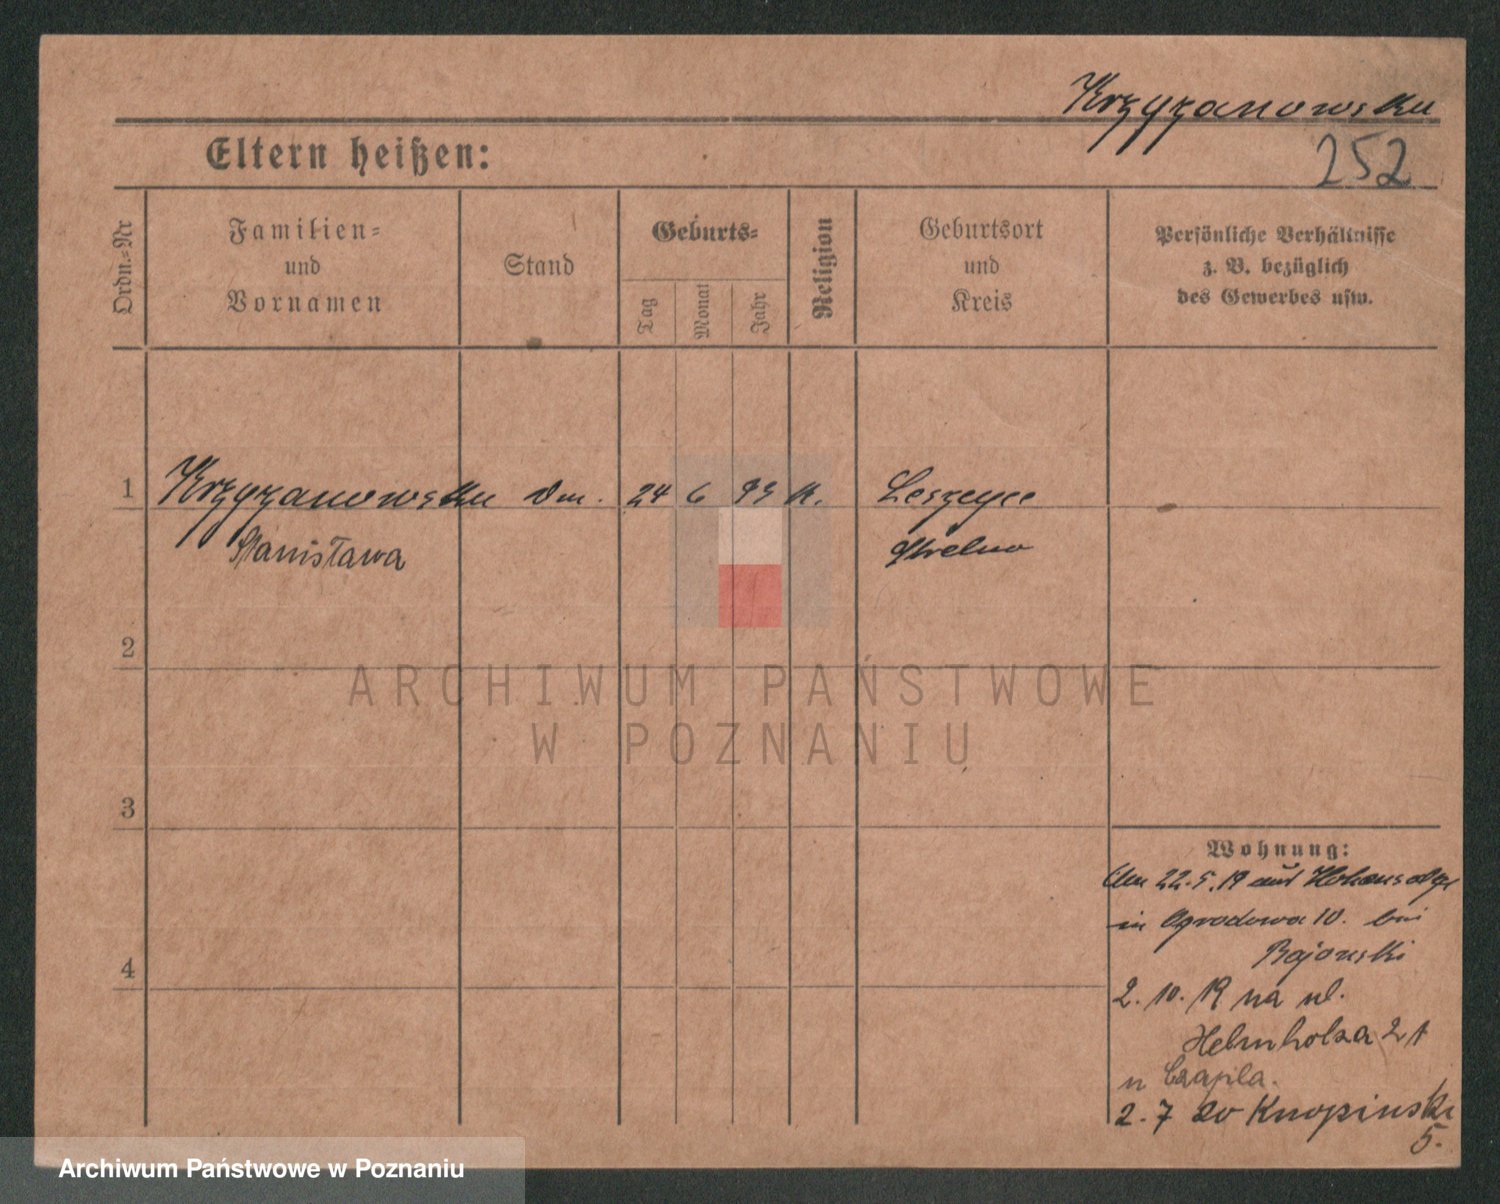 Krzyżanowska
252
Eltern heißen:
Ordn.-Nr
Familien-
und
Vornamen
Stand
Geburts-
Tag
Monat
Jahr
Religion
Geburtsort
und
Kreis
Persönliche Verhältnisse
z. B. bezüglich
des Gewerbes usw.
1 Krzyzanowska 24 6 K. Leszcyce
Stanisława Strelno
2
3
4
ARCHIWUM PAŃSTWOWE
W POZNANIU
Wohnung:
22.5.19 aus Hohensalza
in Ogrodowa 10. bei
2. 10. 19 na ul.
Helmholza 21
u Czapla.
2. 7 20 Knopinski
5.
Archiwum Państwowe w Poznaniu